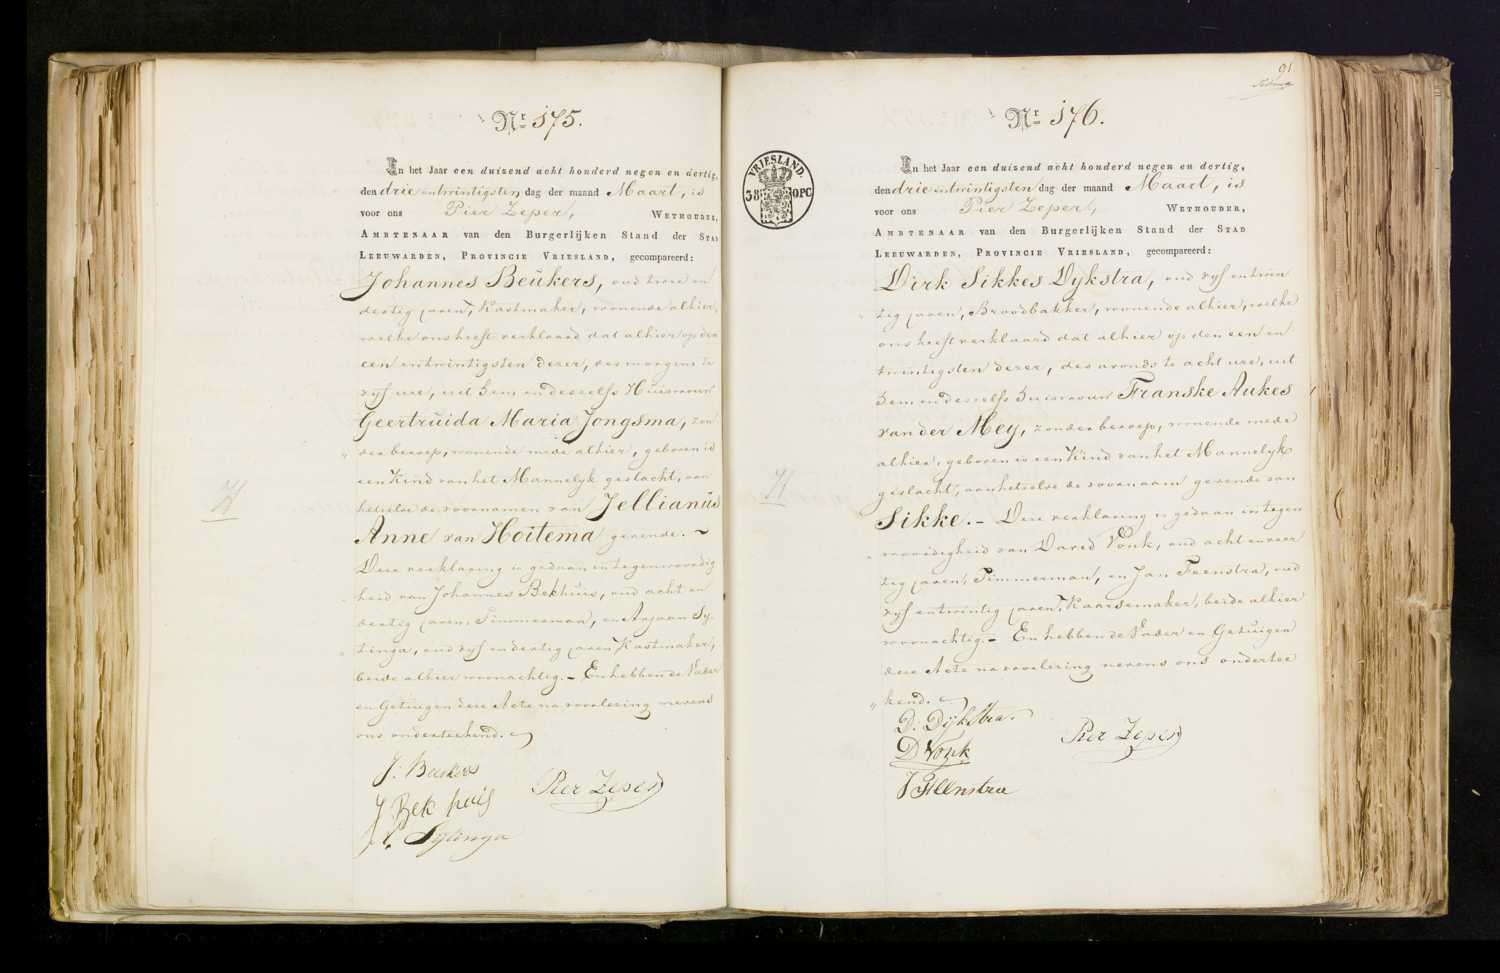 Nr. 175.
In het Jaar een duizend acht honderd negen en dertig,
den drie entwintigsten dag der maand Maart, is
voor ons Pier Zeper, Wethouder,
Ambtenaar van den Burgerlijken Stand der Stad
Leeuwarden, Provincie Vriesland, gecompareerd:
Johannes Beukers, oud twee en
dertig jaren, Kastmaker, wonende alhier,
welke ons heeft verklaard dat alhier op den
een entwintigsten dezer, des morgens te
vyf ure, uit hem en deszelfs Huisvrouw
Geertruida Maria Jongsma, zon
der beroep, wonende mede alhier, geboren is
een Kind van het Mannelyk geslacht, aan
hetwelk de voornamen van Jellianus
Anne van Hoitema gevende. ~
Deze verklaring is gedaan in tegenwoordig
heid van Johannes Bekhuis, oud acht en
dertig jaren, Timmerman, en Arjaan Sy-
tinga, oud vyf en dertig jaren Kastmaker,
beide alhier woonachtig. - En hebben de Vader
en Getuigen deze Acte na voorlezing nevens
ons onderteekend.
J: Beukers
J Bekhuis
Pier Zeper
Sytinga
H
91
Nr. 176.
VRIESLAND.
38 OPC
In het Jaar een duizend acht honderd negen en dertig,
den drie entwintigsten dag der maand Maart, is
voor ons Pier Zeper, Wethouder,
Ambtenaar van den Burgerlijken Stand der Stad
Leeuwarden, Provincie Vriesland, gecompareerd:
Dirk Sikkes Dykstra, oud vyf entwin
tig jaren, Broodbakker, wonende alhier, welke
ons heeft verklaard dat alhier op den een en
twintigsten dezer, des avonds te acht ure, uit
hem en deszelfs huisvrouw Franske Aukes
van der Mey, zonder beroep, wonende mede
alhier, geboren is een Kind van het Mannelyk
geslacht, aan hetwelk de voornaam gevende van
Sikke. - Deze verklaring is gedaan in tegen
woordigheid van David Vonk, oud acht en veer
tig jaren, Timmerman, en Jan Feenstra, oud
vyf entwintig jaren, Kaarsemaker, beide alhier
woonachtig. - En hebben de Vader en Getuigen
deze Acte na voorlezing nevens ons ondertee
kend.
D: Dijkstra.
D Vonk
Pier Zeper
J Feenstra
H